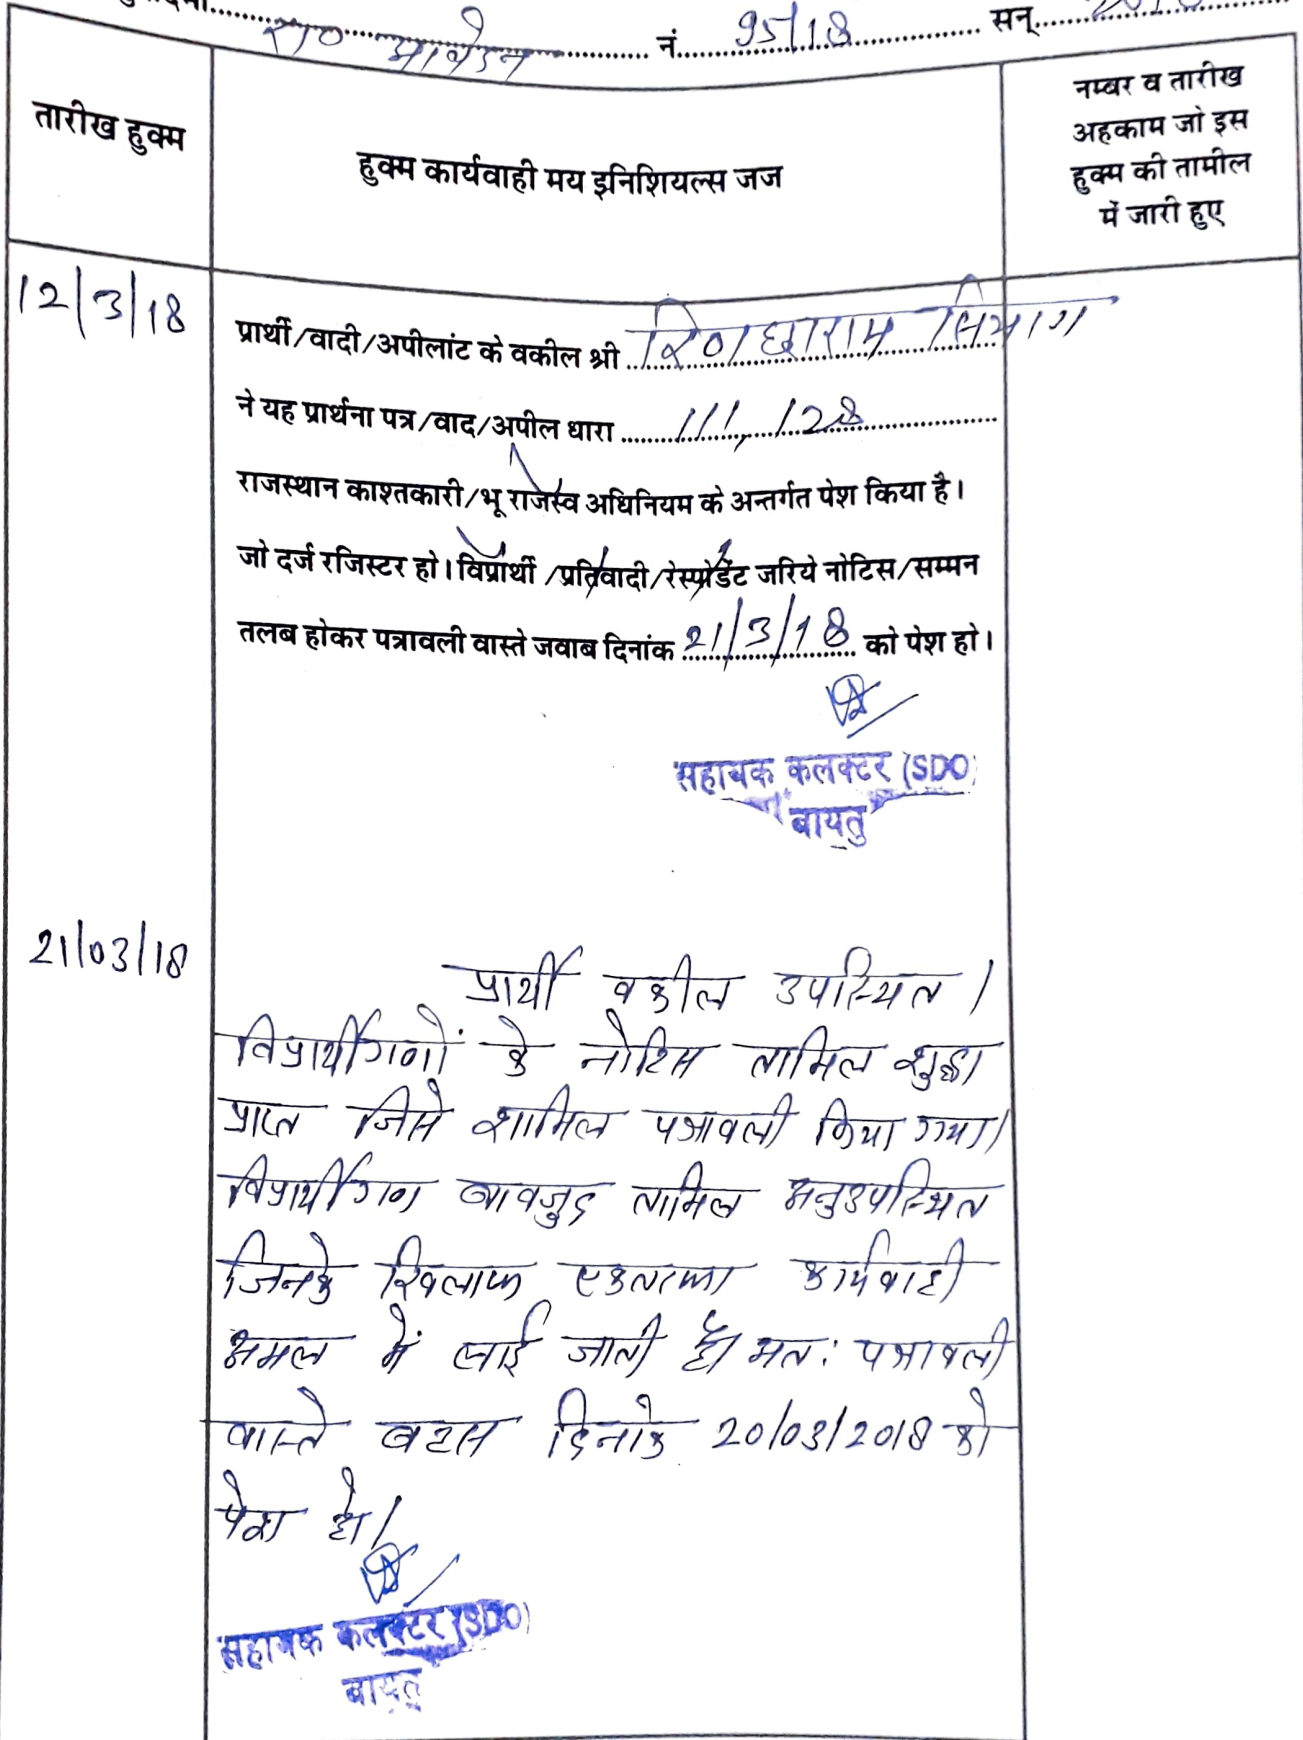 रा० आवेदन नं. 95/18 सन्
तारीख हुक्म
हुक्म कार्यवाही मय इनिशियल्स जज
नम्बर व तारीख
अहकाम जो इस
हुक्म की तामील
में जारी हुए
12/3/18
प्रार्थी/वादी/अपीलांट के वकील श्री रिणछाराम सियाग
ने यह प्रार्थना पत्र/वाद/अपील धारा 111, 128
राजस्थान काश्तकारी/भू राजस्व अधिनियम के अन्तर्गत पेश किया है।
जो दर्ज रजिस्टर हो। विप्रार्थी /प्रतिवादी/रेस्पोडेंट जरिये नोटिस/सम्मन
तलब होकर पत्रावली वास्ते जवाब दिनांक 21/3/18 को पेश हो।
सहायक कलक्टर (SDO)
बायतु
21/03/18
प्रार्थी वकील उपस्थित।
विप्रार्थीगणों के नोटिस तामिल शुद्धा
प्राप्त जिसे शामिल पत्रावली किया गया।
विप्रार्थीगण बावजुद तामिल अनुउपस्थित
जिनके खिलाफ एकतरफा कार्यवाही
अमल में लाई जाती है। अतः पत्रावली
वास्ते बहस दिनांक 20/03/2018 को
पेश हो।
सहायक कलक्टर (SDO)
बायतु